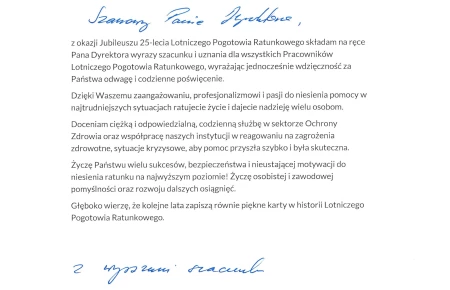 Szanowny Panie Dyrektorze,
z okazji Jubileuszu 25-lecia Lotniczego Pogotowia Ratunkowego składam na ręce
Pana Dyrektora wyrazy szacunku i uznania dla wszystkich Pracowników
Lotniczego Pogotowia Ratunkowego, wyrażając jednocześnie wdzięczność za
Państwa odwagę i codzienne poświęcenie.
Dzięki Waszemu zaangażowaniu, profesjonalizmowi i pasji do niesienia pomocy w
najtrudniejszych sytuacjach ratujecie życie i dajecie nadzieję wielu osobom.
Doceniam ciężką i odpowiedzialną, codzienną służbę w sektorze Ochrony
Zdrowia oraz współpracę naszych instytucji w reagowaniu na zagrożenia
zdrowotne, sytuacje kryzysowe, aby pomoc przyszła szybko i była skuteczna.
Życzę Państwu wielu sukcesów, bezpieczeństwa i nieustającej motywacji do
niesienia ratunku na najwyższym poziomie! Życzę osobistej i zawodowej
pomyślności oraz rozwoju dalszych osiągnięć.
Głęboko wierzę, że kolejne lata zapiszą równie piękne karty w historii Lotniczego
Pogotowia Ratunkowego.
z wyrazami szacunku